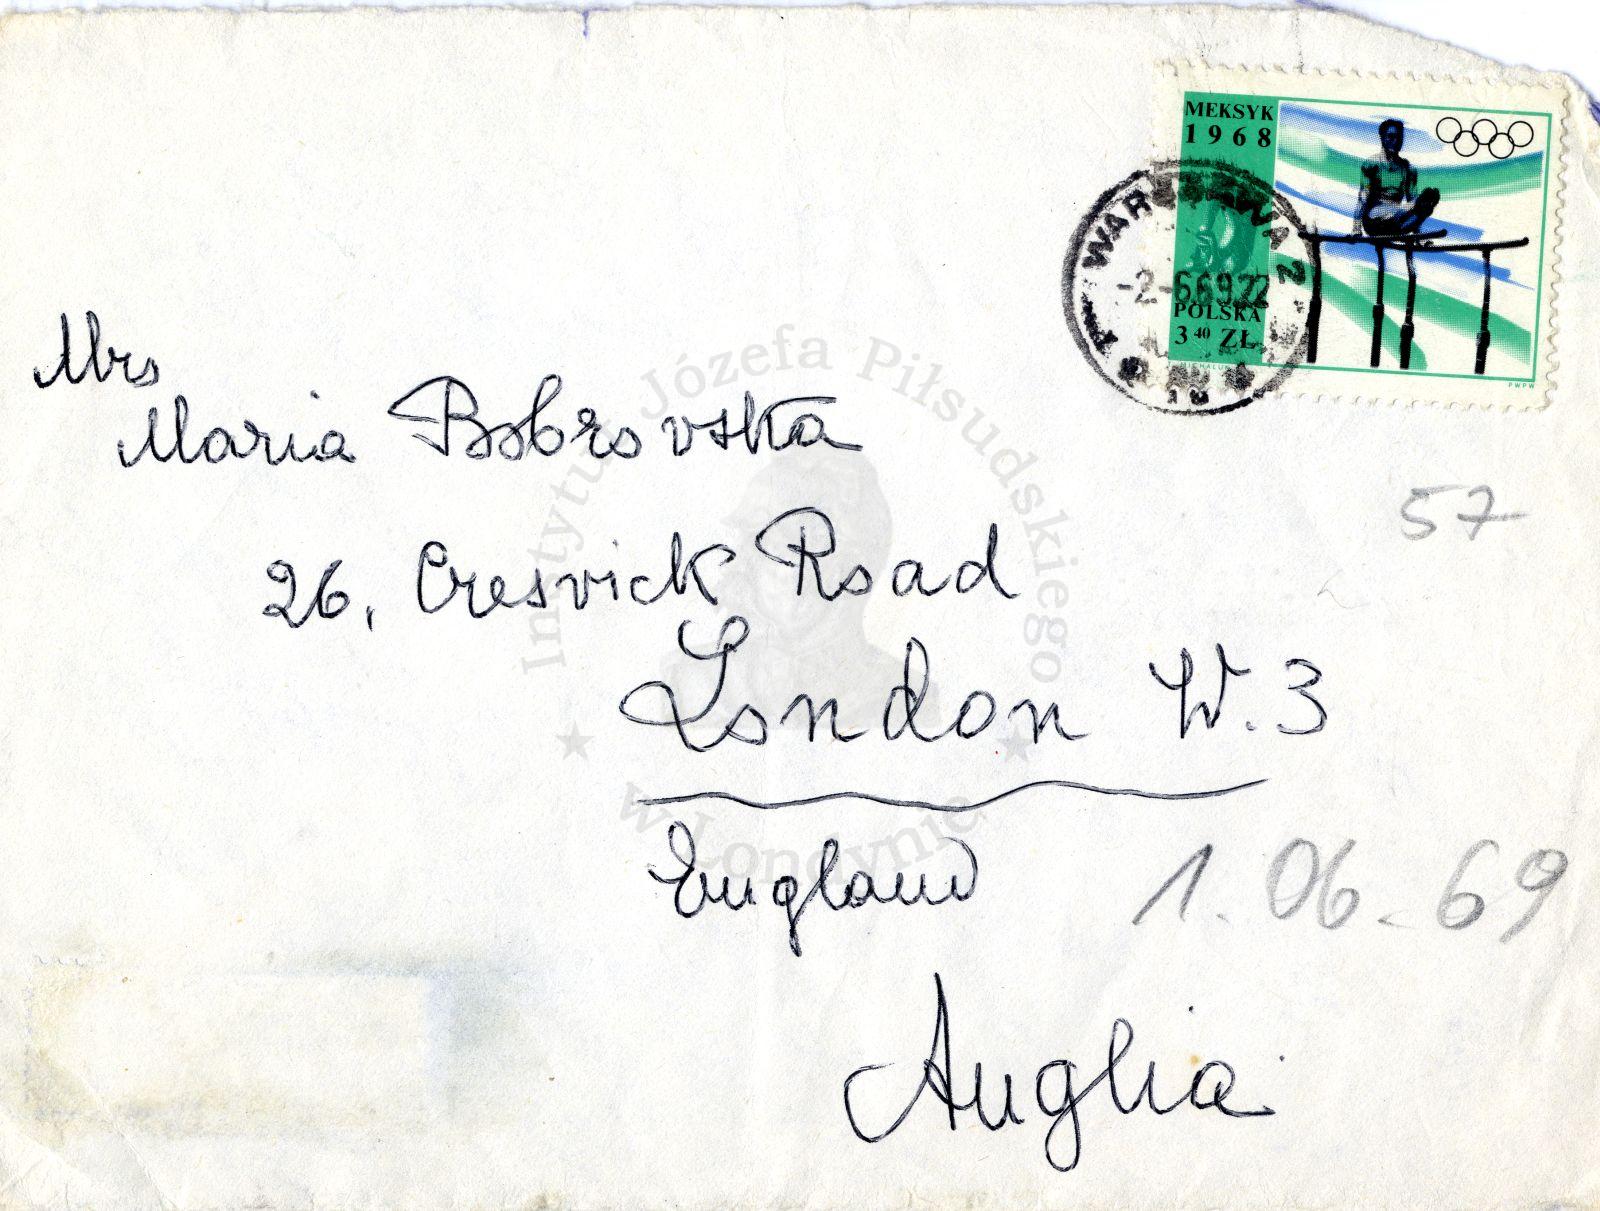 MEKSYK
1968
WARSZAWA 2
-2-6.69.22
POLSKA
3 40 ZŁ
PWPW
Mrs
Maria Bobrovska
57
26, Cresvick Road
London W.3
England
1.06.69
Anglia
Instytut Józefa Piłsudskiego
w Londynie